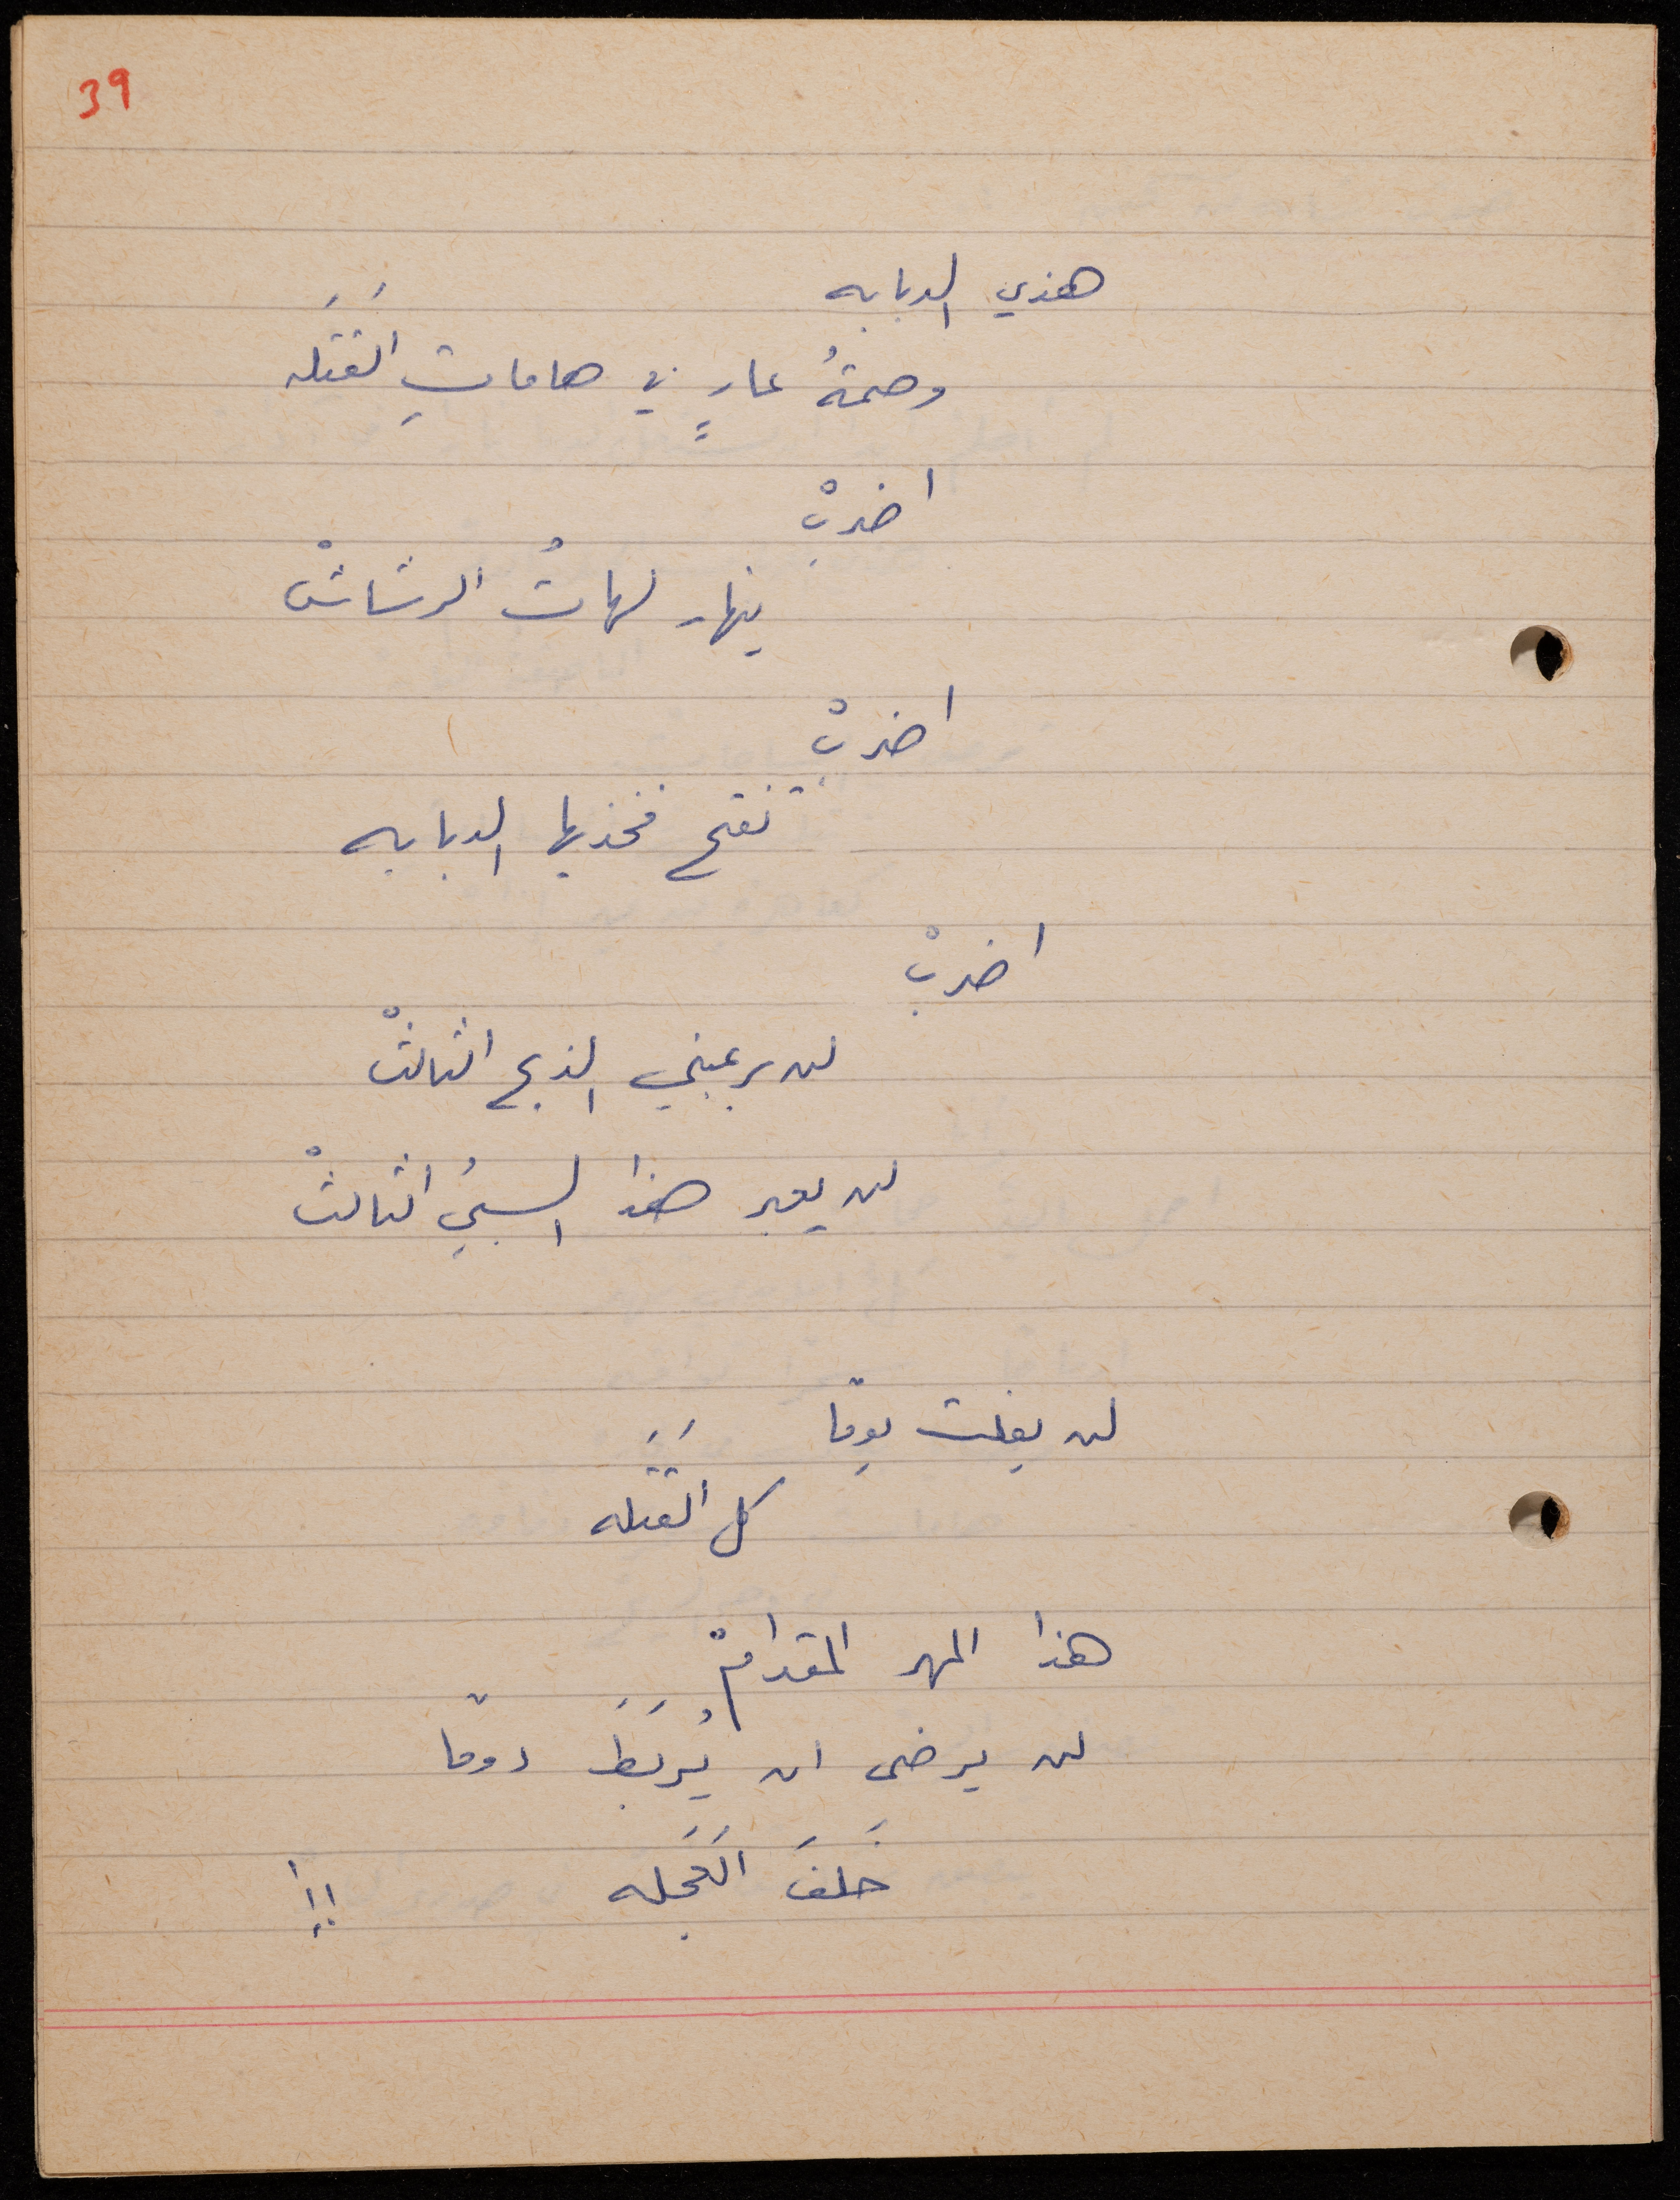 39
هذي الدبابه
وصمةُ عارٍ في هاماتِ القَتَله
اضربْ
ينهار لهاثُ الرشاشْ
اضربْ
تفتح فخذيها الدبابه
اضربْ
لن يرعبني الذبح الثالثْ
لن يعبر هذا السبيُ الثالثْ
لن يفلت يومًا
كل القَتَله
هذا المهر المقدامْ
لن يرضى ان يُربَطَ دومًا
خَلفَ العَجَله !!!